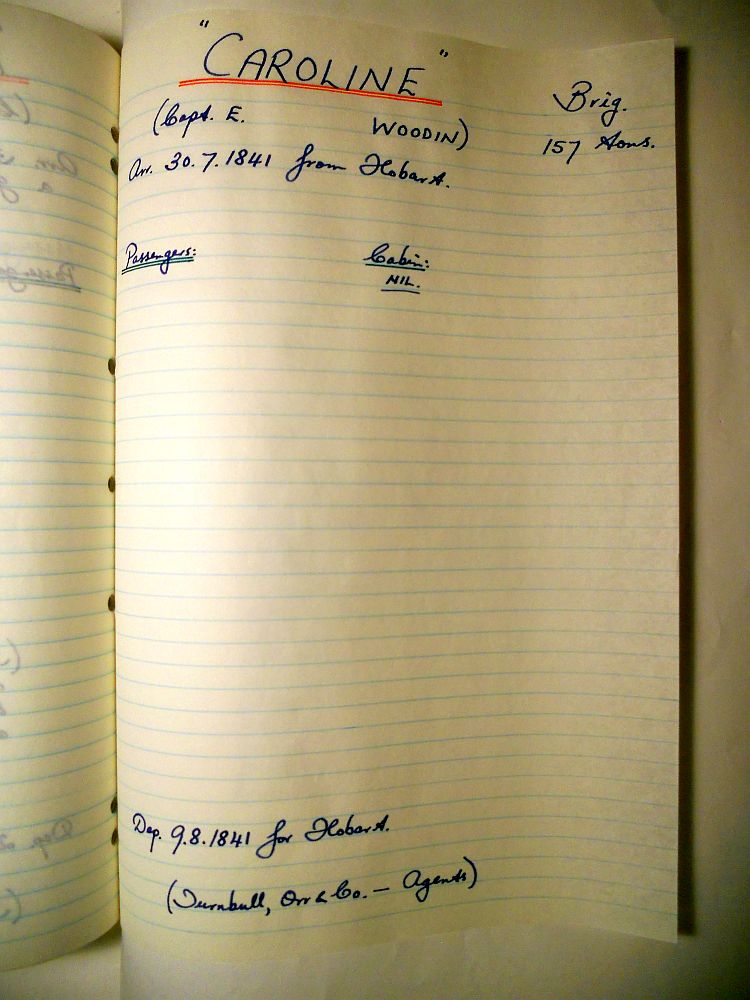 "CAROLINE"
Brig.
(Capt. E. WOODIN)
157 tons.
Arr. 30.7.1841 from Hobart.
Passengers:
Cabin:
NIL.
Dep. 9.8.1841 for Hobart.
(Turnbull, Orr & Co. — Agents)